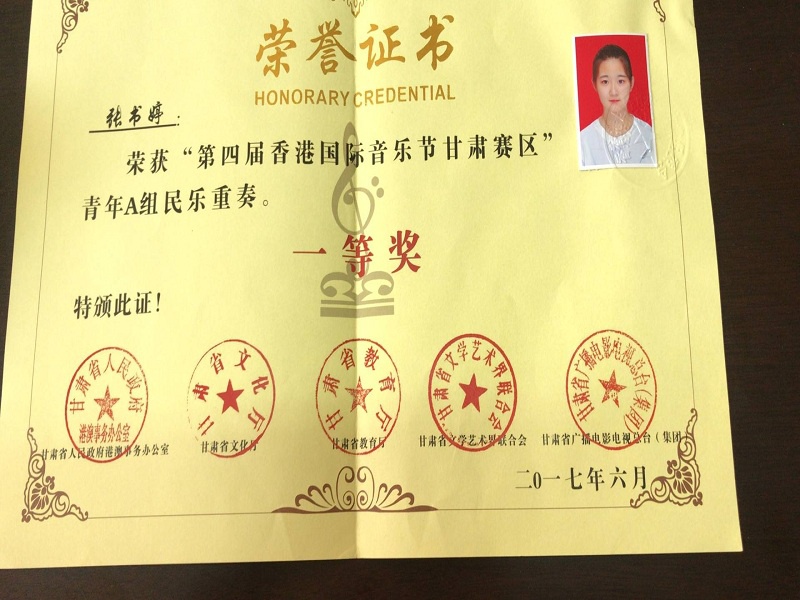 荣誉证书
HONORARY CREDENTIAL
张书婷：
荣获“第四届香港国际音乐节甘肃赛区”
青年A组民乐重奏。
一等奖
特颁此证！
甘肃省人民政府
港澳事务办公室
甘肃省文化厅
甘肃省教育厅
甘肃省文学艺术界联合会
甘肃省广播电影电视总台(集团)
甘肃省人民政府港澳事务办公室
甘肃省文化厅
甘肃省教育厅
甘肃省文学艺术界联合会
甘肃省广播电影电视总台（集团）
二〇一七年六月